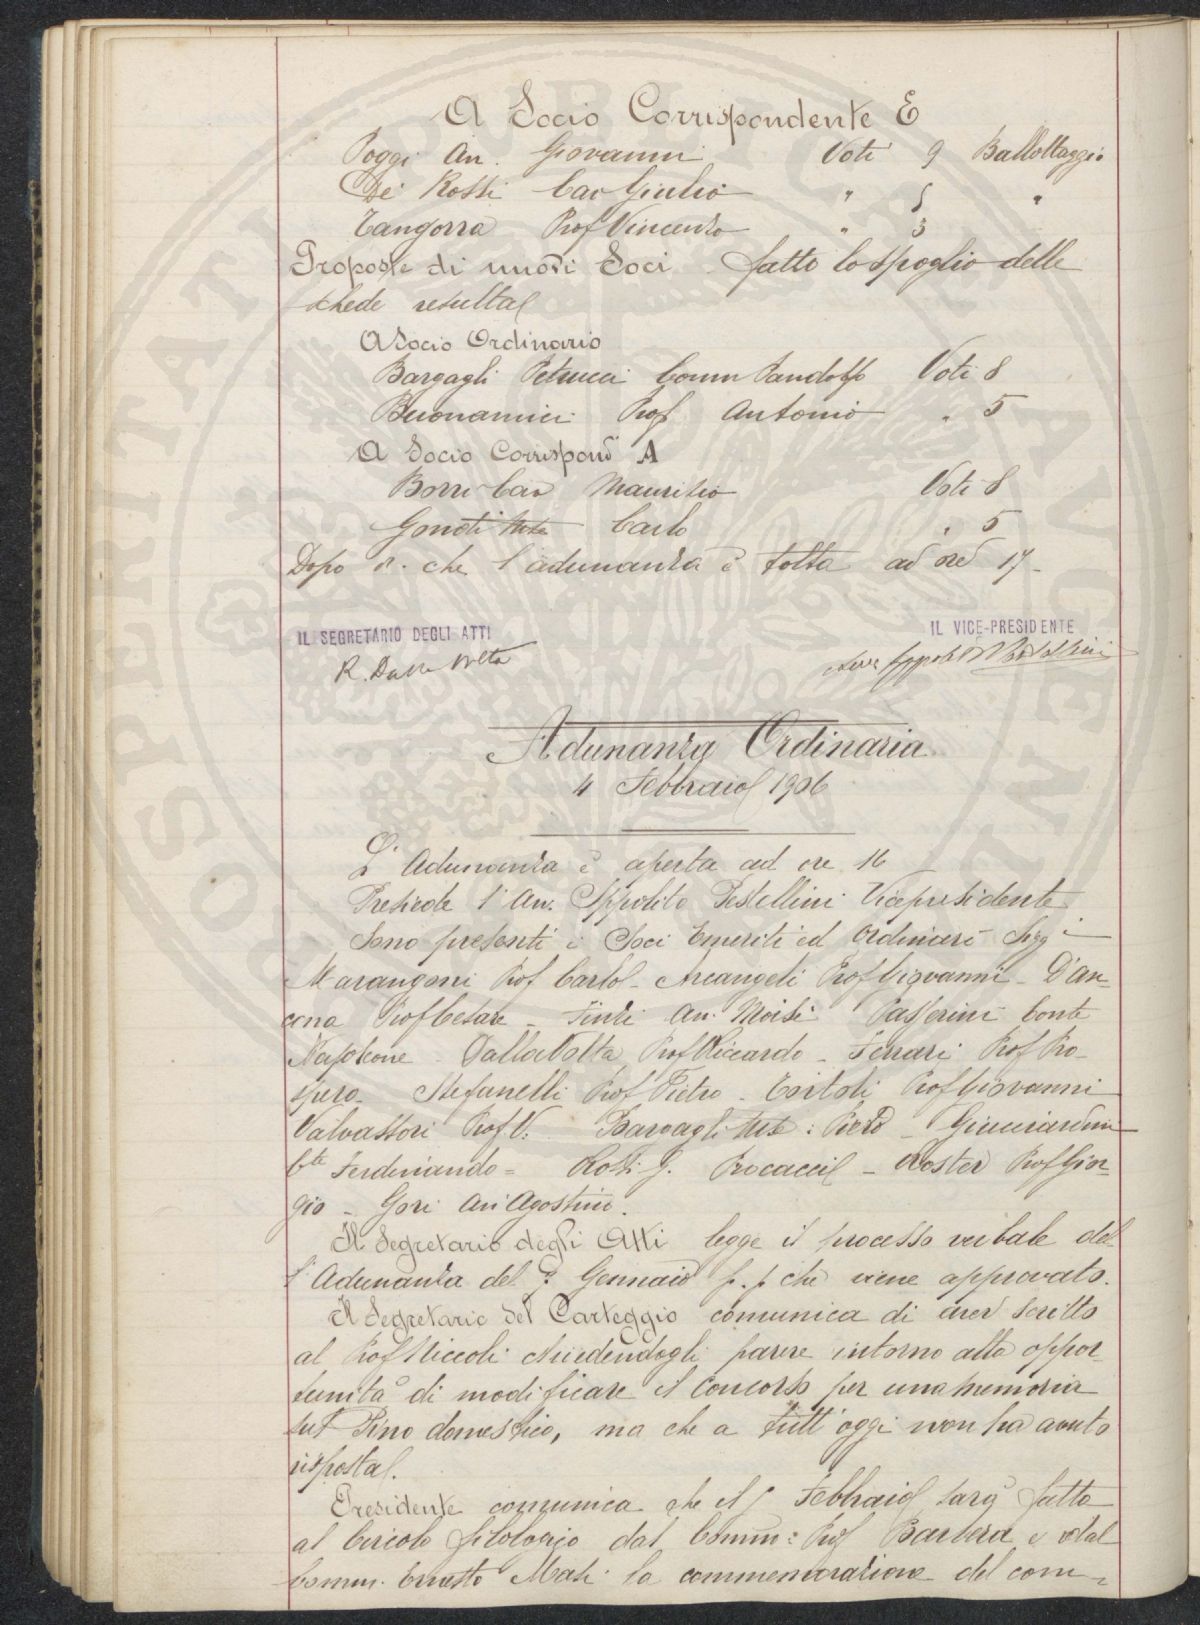 A Socio Corrispondente E
Poggi Av. Giovanni Voti 9 Ballottaggio
De' Rossi Cav Giulio " 5 "
Tangorra Prof Vincenzo " 3
Proposte di nuovi Soci. fatto lo spoglio delle
schede resulta
A Socio Ordinario
Bargagli Petrucci Comm Pandolfo Voti 8
Buonamici Prof Antonio " 5
A Socio Corrispond A
Borri Cav Maurizio Voti 8
Carlo " 5
Dopo di che l'adunanza è tolta ad ore 17-
IL SEGRETARIO DEGLI ATTI IL VICE-PRESIDENTE
R. Dalla Volta Avv Ippolito Pestellini
Adunanza Ordinaria
4 Febbraio 1906
L'Adunanza è aperta ad ore 16
Presiede l'Av. Ippolito Pestellini Vicepresidente
Sono presenti i Soci Emeriti ed Ordinari Sigg i
Marangoni Prof Carlo - Arcangeli Prof Giovanni - D'An-
cona Prof Cesare - Finzi Av. Moisè Passerini Conte
Napoleone - Dalla Volta Prof Riccardo - Ferrari Prof Pro-
spero - Stefanelli Prof Pietro - Tortoli Prof Giovanni
Valvassori Prof V. Bargagli Mse: Piero - Guicciardini
Cte Ferdinando = Rossi G. Procacci - Roster Prof Gior-
gio - Gori Av Agostino.
Il Segretario degli Atti legge il processo verbale del
l'Adunanza del 7 Gennaio p. p che viene approvato.
Il Segretario del Carteggio comunica di aver scritto
al Prof Niccoli chiedendogli parere intorno alla oppor-
tunità di modificare il Concorso per una memoria
sul Pino domestico, ma che a tutt'oggi non ha avuto
risposta.
Presidente comunica che il Febbraio sarà fatta
al Circolo filologico dal Comm: Prof Barbera e dal
Comm. Ernesto Masi la commemorazione del com-